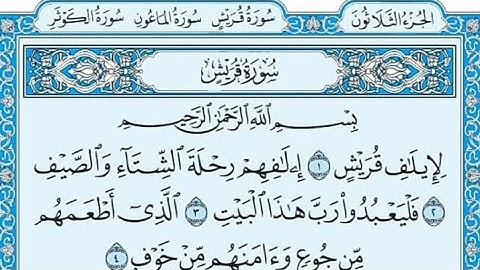 الجُزْءُ الثَّلَاثُونَ سُورَةُ قُرَيْشٍ سُورَةُ المَاعُونِ سُورَةُ الكَوْثَرِ
سُورَةُ قُرَيْشٍ
بِسْمِ ٱللَّهِ ٱلرَّحْمَٰنِ ٱلرَّحِيمِ
لِإِيلَٰفِ قُرَيْشٍ ١ إِۦلَٰفِهِمْ رِحْلَةَ ٱلشِّتَآءِ وَٱلصَّيْفِ
٢ فَلْيَعْبُدُوا۟ رَبَّ هَٰذَا ٱلْبَيْتِ ٣ ٱلَّذِىٓ أَطْعَمَهُم
مِّن جُوعٍ وَءَامَنَهُم مِّنْ خَوْفٍ ٤